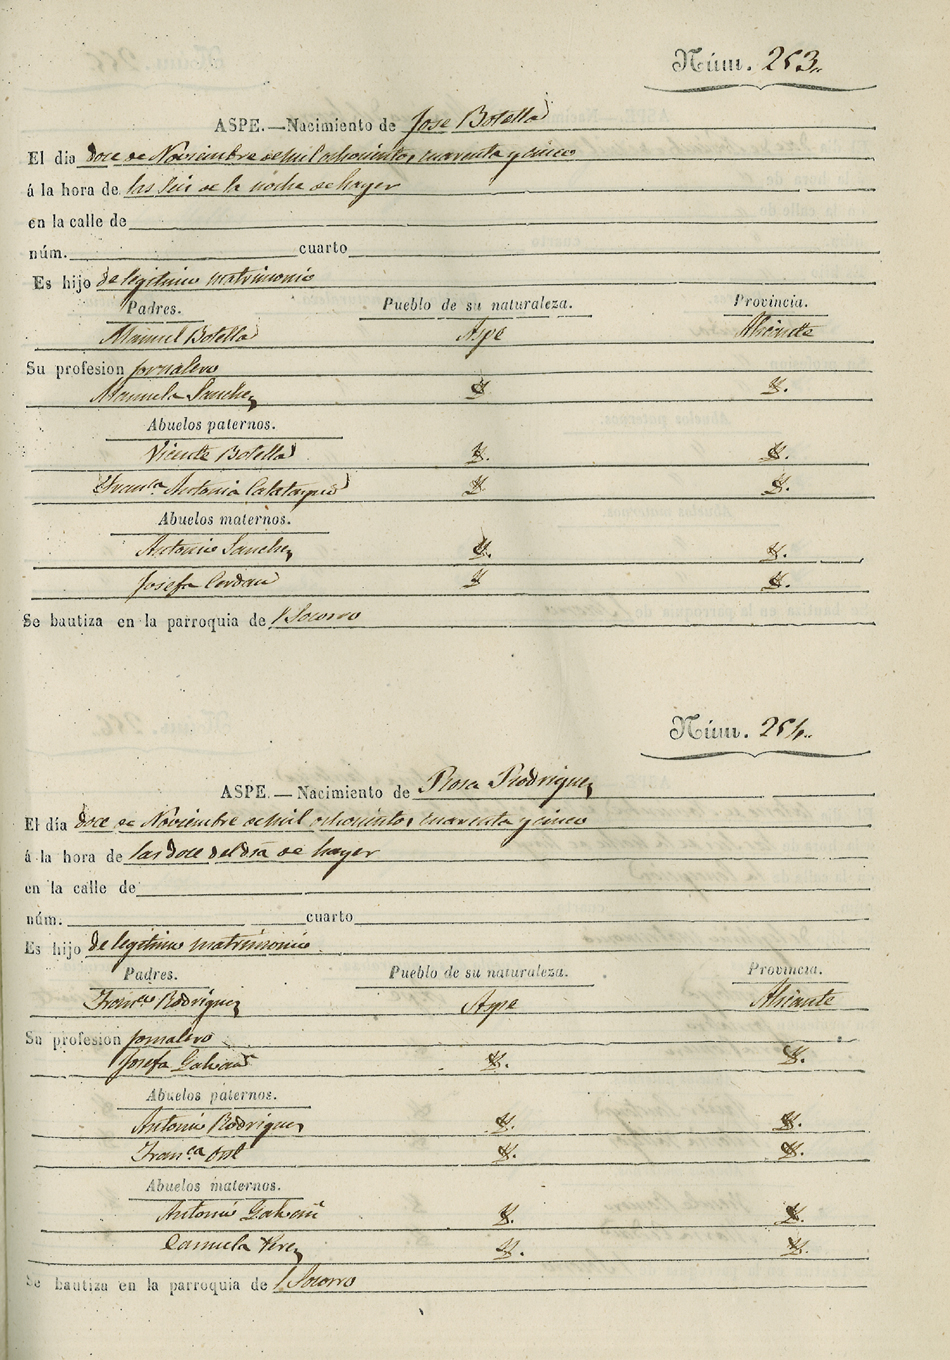 Núm. 253.
ASPE.—Nacimiento de Jose Botella
El dia doce de Noviembre de mil ochocientos cuarenta y cinco
á la hora de las seis de la noche de hayer
en la calle de
núm. cuarto
Es hijo de legitimo matrimonio
Padres. Pueblo de su naturaleza. Provincia.
Manuel Botella Aspe Alicante
Su profesion jornalero
Manuela Sanchez Y. Y.
Abuelos paternos.
Vicente Botella Y. Y.
Franca Antonia Calatayud Y. Y.
Abuelos maternos.
Antonio Sanchez Y. Y.
Josefa Cerdan Y. Y.
Se bautiza en la parroquia de l Socorro
Núm. 254.
ASPE.—Nacimiento de Rosa Rodriguez
El día doce de Noviembre de mil ochocientos cuarenta y cinco
á la hora de las doce del dia de hayer
en la calle de
núm. cuarto
Es hijo de legitimo matrimonio
Padres. Pueblo de su naturaleza. Provincia.
Franco Rodriguez Aspe Alicante
Su profesion jornalero
Josefa Galvañ Y. Y.
Abuelos paternos.
Antonio Rodriguez Y. Y.
Franca Y. Y.
Abuelos maternos.
Antonio Galvañ Y. Y.
Perez Y. Y.
Se bautiza en la parroquia de l Socorro